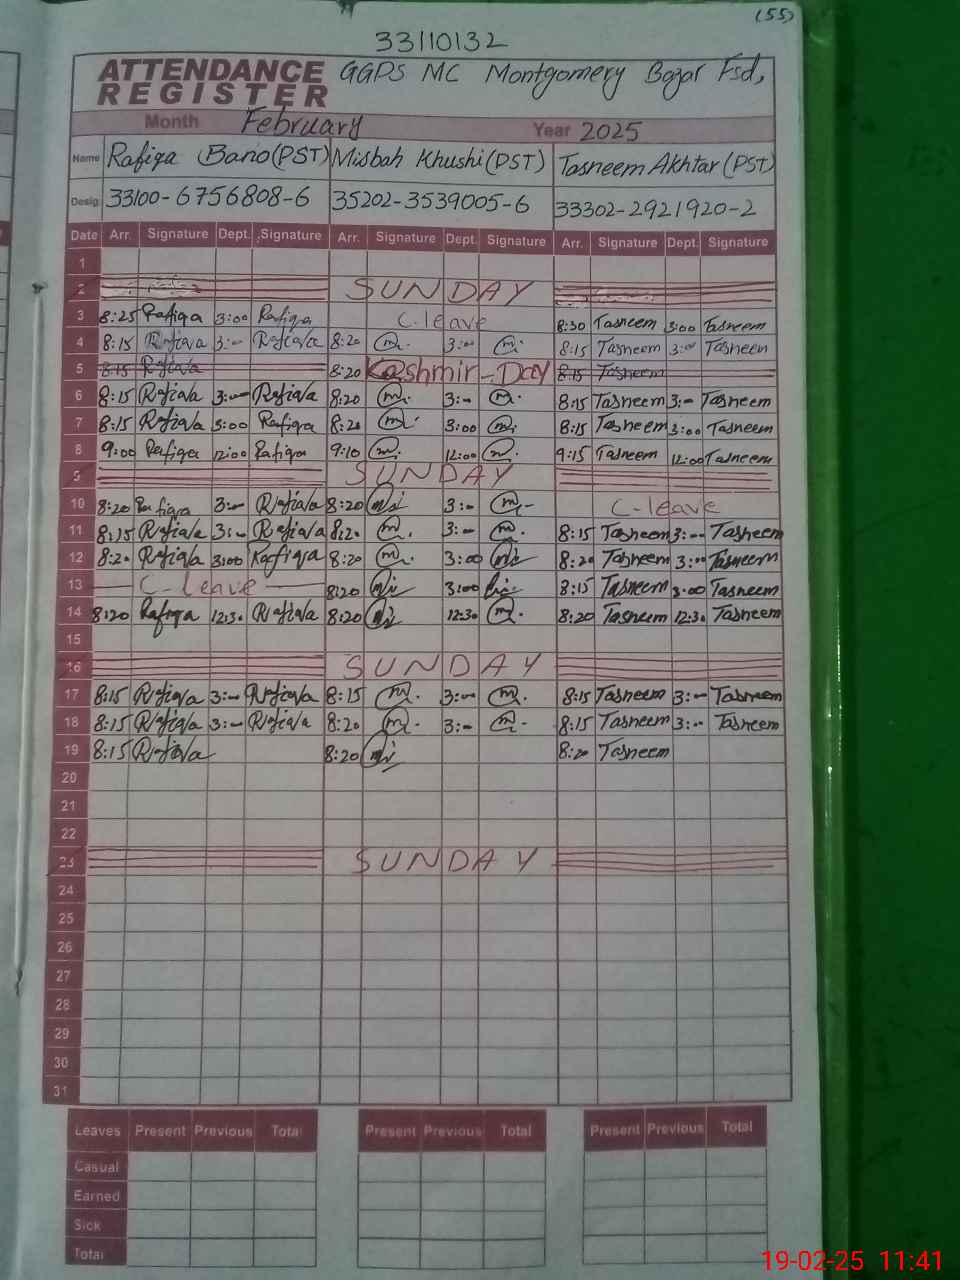 (55)
33110132
ATTENDANCE REGISTER GGPS MC Montgomery Bazar Fsd,
Month February Year 2025
Name Rafiqa Bano (PST) Misbah Khushi (PST) Tasneem Akhtar (PST)
Desig. 33100-6756808-6 35202-3539005-6 33302-2921920-2
Date Arr. Signature Dept. Signature Arr. Signature Dept. Signature Arr. Signature Dept. Signature
1
2 SUNDAY
3 8:25 Rafiqa 3:00 Rafiqa C.leave 8:30 Tasneem 3:00 Tasneem
4 8:15 Rafiqa 3:— Rafiqa 8:20 m. 3:00 m. 8:15 Tasneem 3:— Tasneem
5 8:15 Rafiqa 8:20 Kashmir-Day 8:15 Tasneem
6 8:15 Rafiqa 3:— Rafiqa 8:20 m. 3:— m. 8:15 Tasneem 3:— Tasneem
7 8:15 Rafiqa 3:00 Rafiqa 8:20 m. 3:00 m. 8:15 Tasneem 3:00 Tasneem
8 9:00 Rafiqa 12:00 Rafiqa 9:10 m. 12:00 m. 9:15 Tasneem 12:00 Tasneem
9 SUNDAY
10 8:20 Rafiqa 3:— Rafiqa 8:20 3:— m. C-leave
11 8:15 Rafiqa 3:— Rafiqa 8:20 m. 3:— m. 8:15 Tasneem 3:— Tasneem
12 8:20 Rafiqa 3:00 Rafiqa 8:20 m. 3:00 8:20 Tasneem 3:00 Tasneem
13 C-leave 8:20 3:00 8:15 Tasneem 3:00 Tasneem
14 8:20 Rafiqa 12:30 Rafiqa 8:20 12:30 m. 8:20 Tasneem 12:30 Tasneem
15
16 SUNDAY
17 8:15 Rafiqa 3:— Rafiqa 8:15 m. 3:— m. 8:15 Tasneem 3:— Tasneem
18 8:15 Rafiqa 3:— Rafiqa 8:20 m. 3:— m. 8:15 Tasneem 3:— Tasneem
19 8:15 Rafiqa 8:20 8:20 Tasneem
20
21
22
23 SUNDAY
24
25
26
27
28
29
30
31
Leaves Present Previous Total Present Previous Total Present Previous Total
Casual
Earned
Sick
Total
19-02-25 11:41